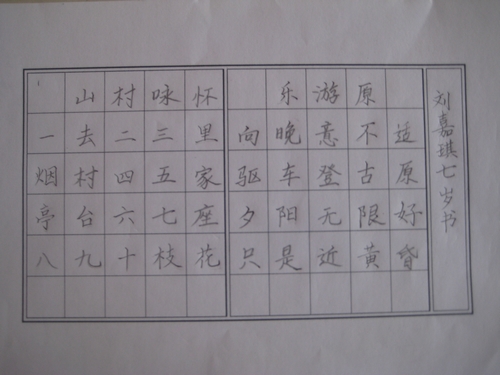 山村咏怀
一去二三里
烟村四五家
亭台六七座
八九十枝花
乐游原
向晚意不适
驱车登古原
夕阳无限好
只是近黄昏
刘嘉琪七岁书